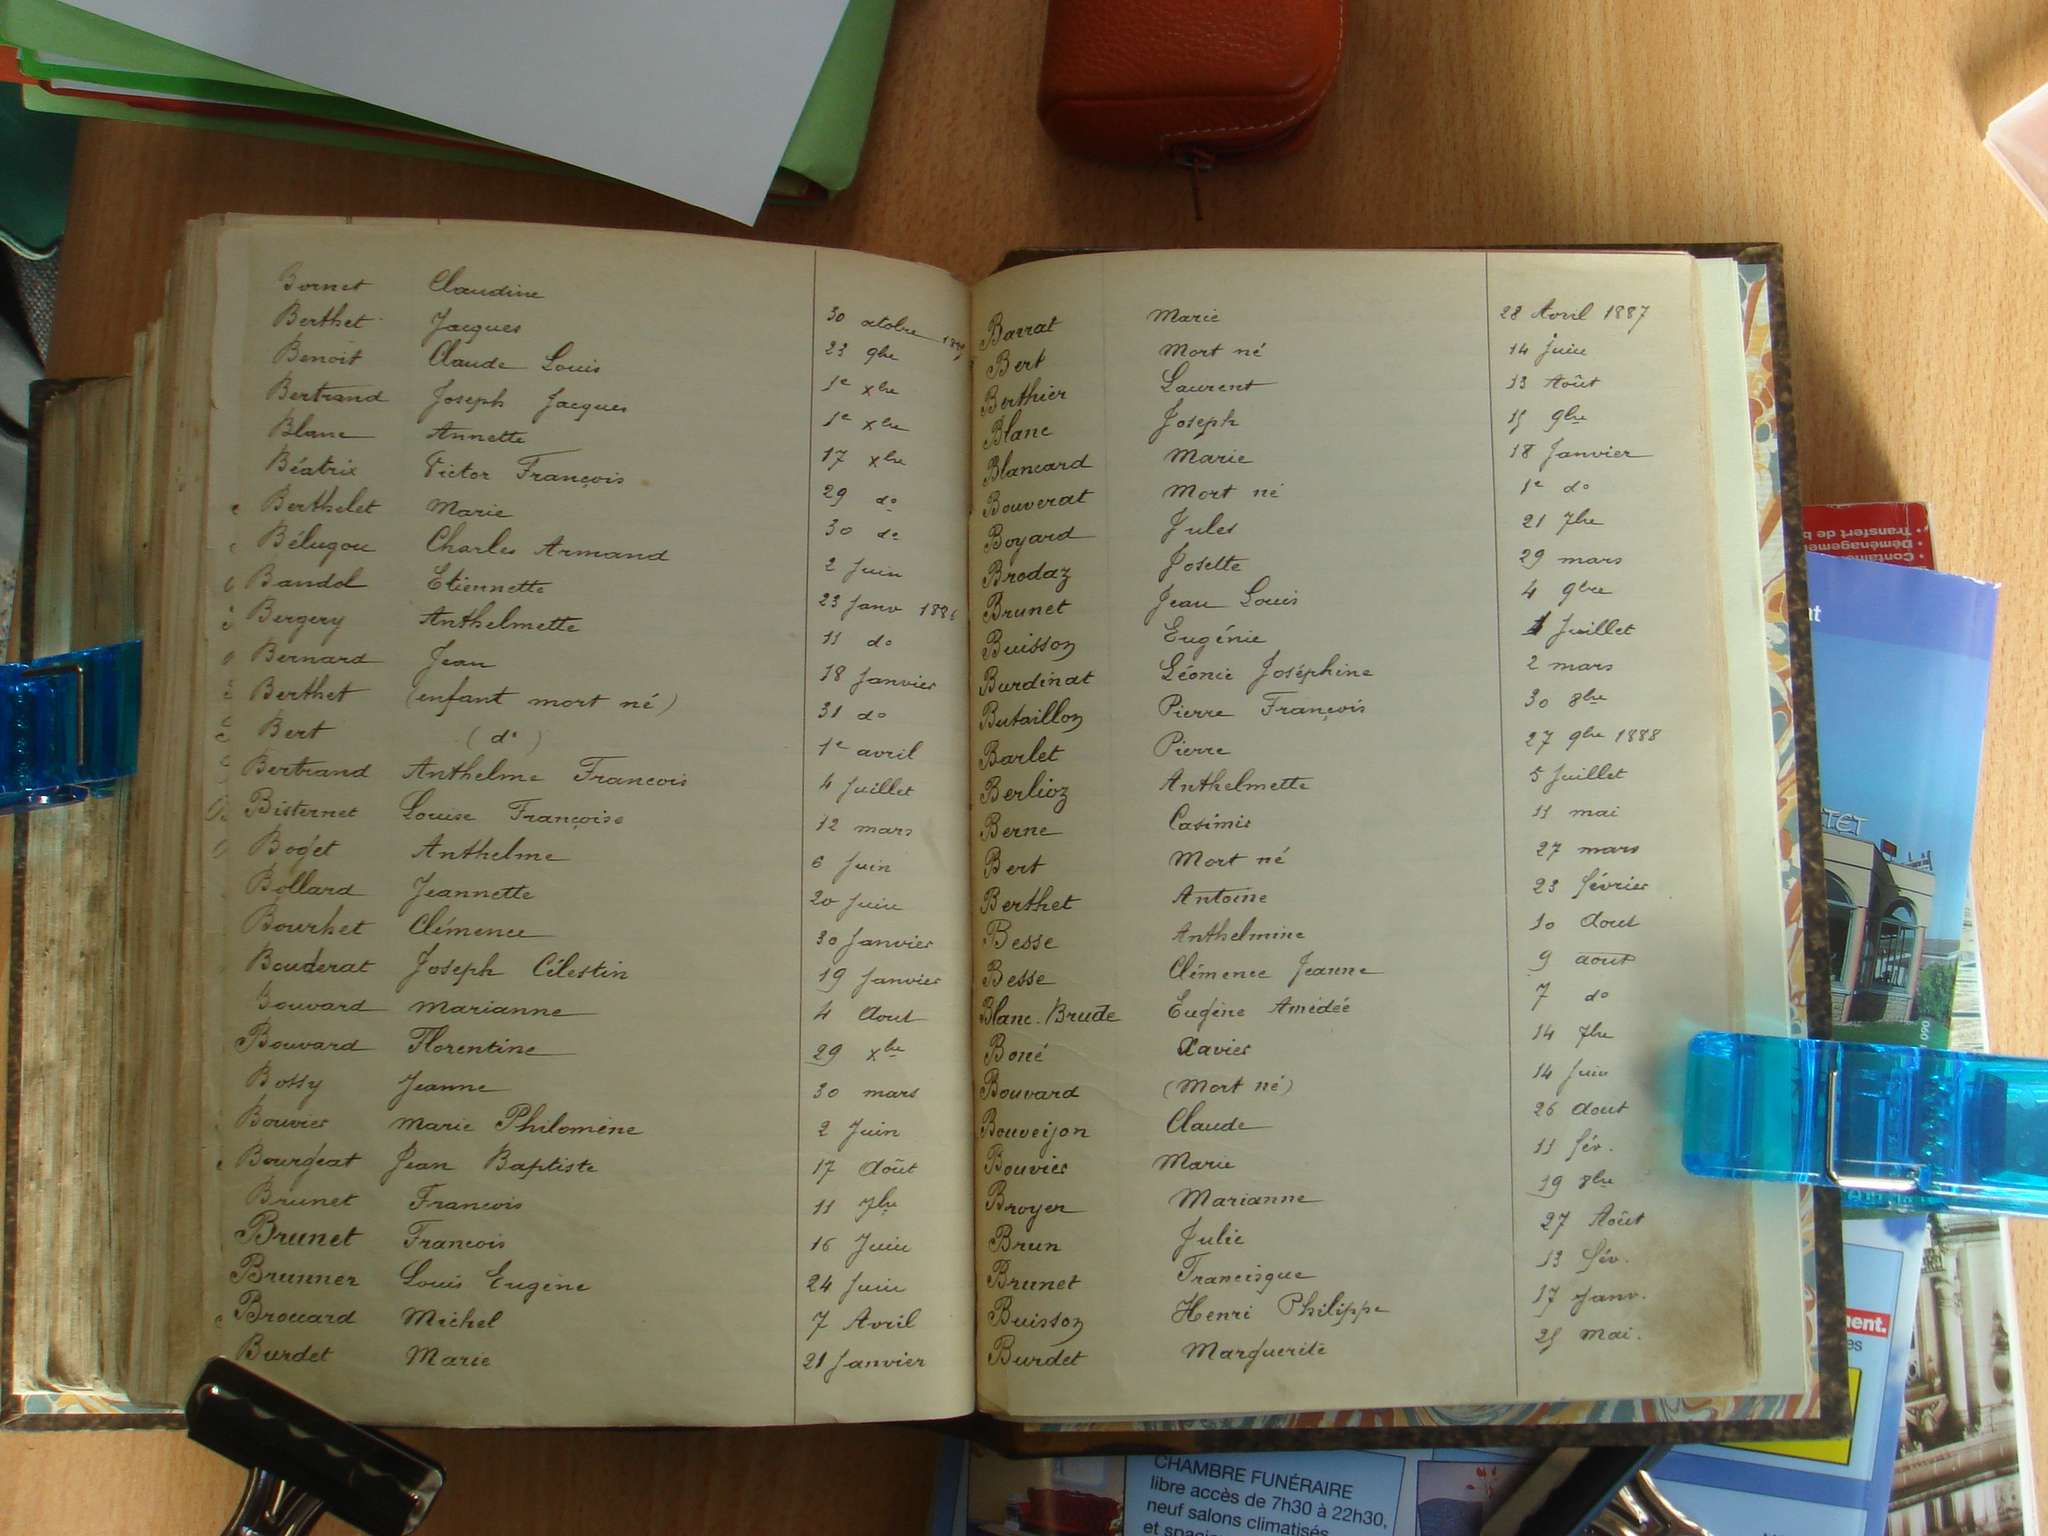 Bornet Claudine 30 octobre
Berthet Jacques 23 9bre
Benoit Claude Louis 1e xbre
Bertrand Joseph Jacques 1e xbre
Blanc Annette 17 xbre
Béatrix Victor François 29 do
Berthelet Marie 30 do
Bélugou Charles Armand 2 Juin
Bandol Etiennette 23 Janv 1886
Bergery Anthelmette 11 do
Bernard Jean 18 Janvier
Berthet (enfant mort né) 31 do
Bert (do) 1e avril
Bertrand Anthelme Francois 4 Juillet
Bisternet Louise Françoise 12 mars
Boget Anthelme 6 Juin
Bollard Jeannette 20 Juin
Bourhet Clémence 30 Janvier
Bouderat Joseph Célestin 19 Janvier
Bouvard Marianne 4 Aout
Bouvard Florentine 29 xbre
Bossy Jeanne 30 mars
Bouvier Marie Philomène 2 Juin
Bourgeat Jean Baptiste 17 Août
Brunet François 11 7bre
Brunet Francois 16 Juin
Brunner Louis Eugène 24 Juin
Brouard Michel 7 Avril
Burdet Marie 21 Janvier
Barrat Marie 28 Avril 1887
Bert Mort né 14 Juin
Berthier Laurent 13 Août
Blanc Joseph 15 9bre
Blancard Marie 18 Janvier
Bouverat Mort né 1e do
Boyard Jules 21 7bre
Brodaz Josette 29 mars
Brunet Jean Louis 4 9bre
Buisson Eugénie 1 Juillet
Burdinat Léonie Joséphine 2 mars
Butaillon Pierre François 30 8bre
Barlet Pierre 27 9bre 1888
Berlioz Anthelmette 5 Juillet
Berne Casimir 11 mai
Bert Mort né 27 mars
Berthet Antoine 23 février
Besse Anthelmine 10 Aout
Besse Clémence Jeanne 9 aout
Blanc. Brude Eugène Amédée 7 do
Boné Xavier 14 7bre
Bouvard (Mort né) 14 Juin
Bouveijon Claude 26 Aout
Bouvier Marie 11 fév.
Broyer Marianne 19 8bre
Brun Julie 27 Août
Brunet Francisque 13 fév.
Buisson Henri Philippe 17 Janv.
Burdet Marguerite 25 mai.
Transfert de b
Déménagement
TET
ment.
CHAMBRE FUNÉRAIRE
libre accès de 7h30 à 22h30,
neuf salons climatisés